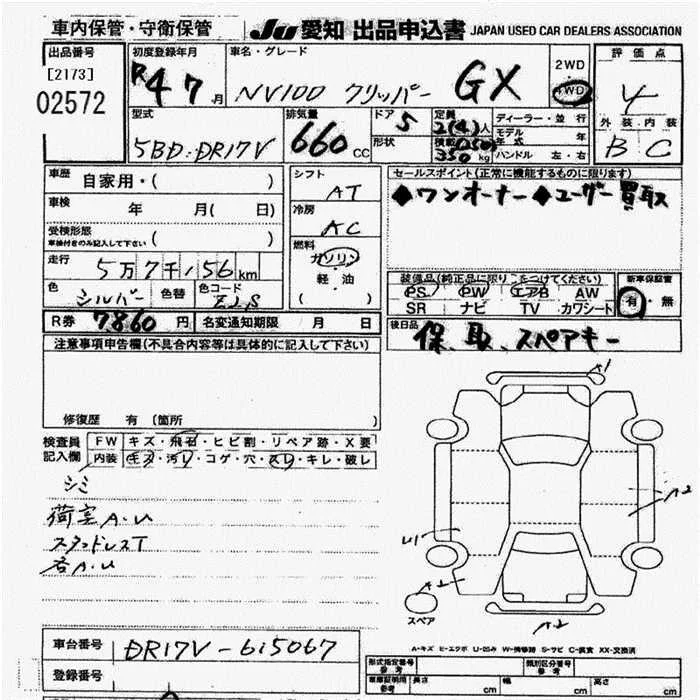 車内保管・守衛保管
JU 愛知 出品申込書 JAPAN USED CAR DEALERS ASSOCIATION
出品番号
[2173]
02572
初度登録年月
R4 7月
車名・グレード
NV100 クリッパー GX
2WD
4WD
評価点
4
外装 内装
B C
型式
5BD-DR17V
排気量
660 CC
ドア
5
形状
定員
2(4)人
積載
350(250) kg
ディーラー・並行
モデル年式 年
ハンドル 左・右
車歴
自家用・( )
車検
年 月( 日)
受検形態
車検付きのみ記入して下さい ( )
走行
5万7千156km
色
シルバー
色替
色コード
Z2S
シフト
AT
冷房
AC
燃料
ガソリン
軽・油
( )
セールスポイント(正常に機能するものに限ります)
◆ワンオーナー◆ユーザー買取
装備品(純正品に限り○をつけてください)
PS PW エアB AW
SR ナビ TV カワシート
新車保証書
有・無
R券 7860円 名変通知期限 月 日
後日品
保、取、スペアキー
注意事項申告欄(不具合内容等は具体的に記入して下さい)
修復歴 有(箇所 )
検査員記入欄
FW キズ・飛石・ヒビ割・リペア跡・X要
内装 キズ・汚レ・コゲ・穴・スレ・キレ・破レ
シミ
荷室A・U
スタッドレスT
各A・U
A1
A2
U1
A2
スペア
A2
A-キズ E-エクボ U-凹み W-補修跡 S-サビ C-腐食 XX-交換済
車台番号
DR17V-615067
登録番号
形式指定番号
参考
類別区分番号
参考
車庫証明用
参考
長さ cm
幅 cm
高さ cm